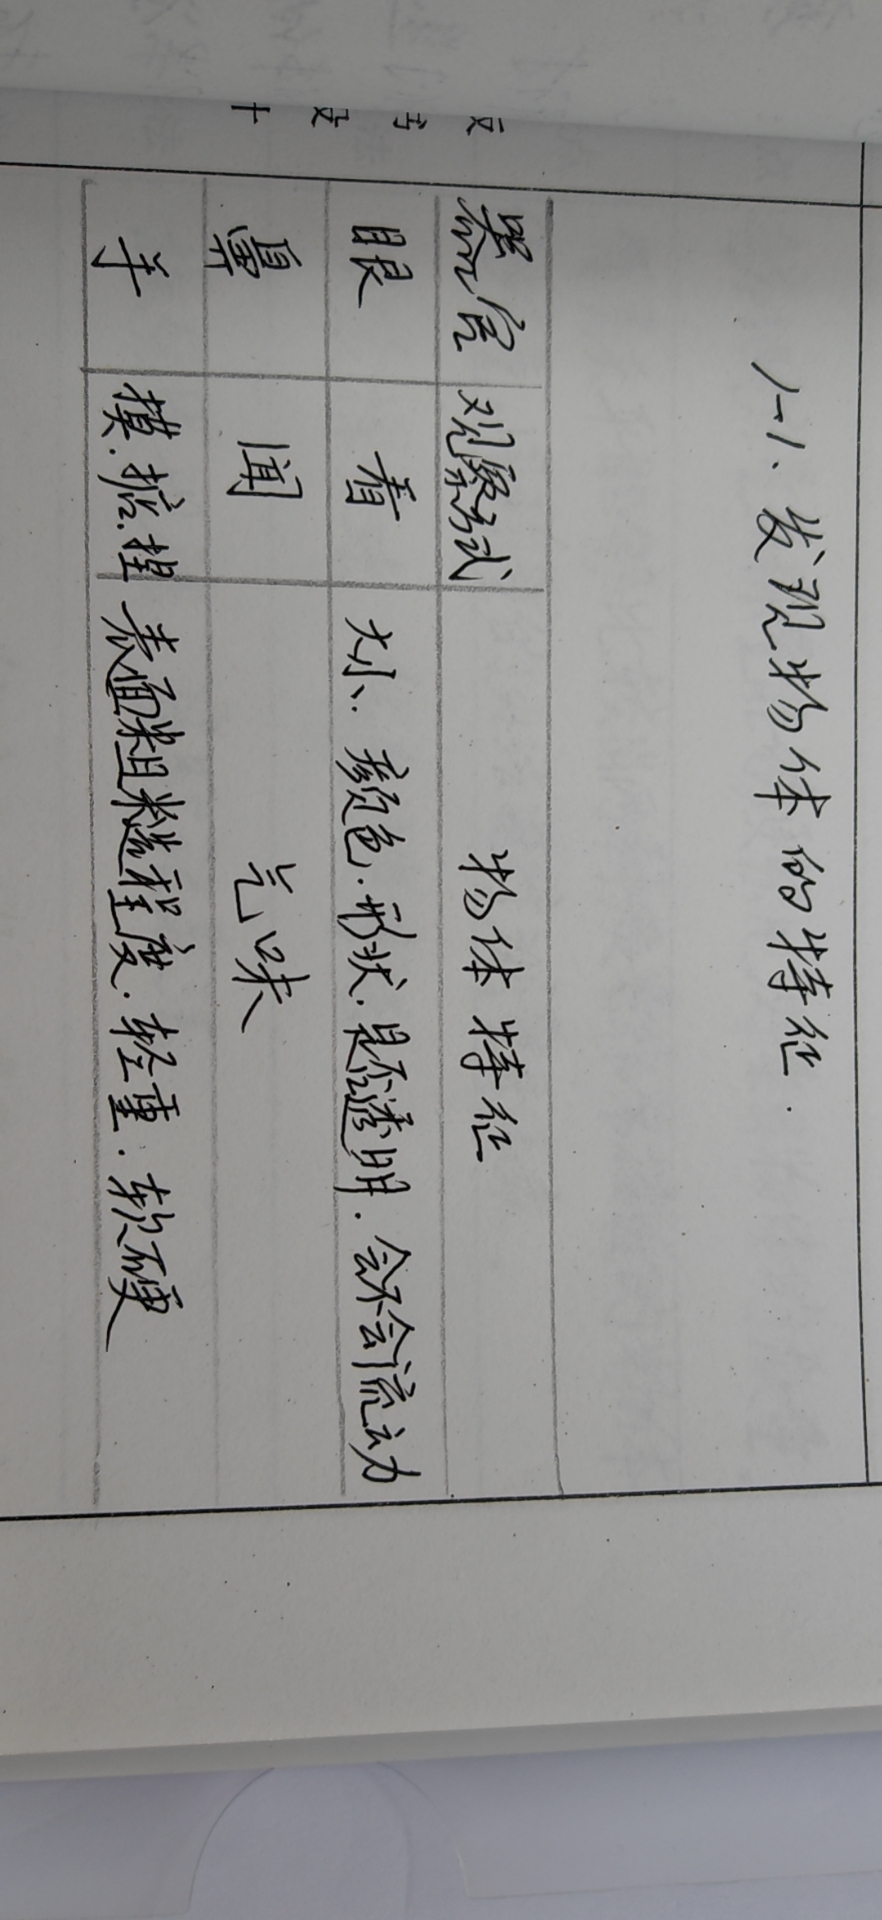 1-1、发现物体的特征.
器官 观察方式 物体特征
眼 看 大小、颜色.形状.是否透明.会不会流动
鼻 闻 气味
手 摸.掂.捏 表面粗糙程度.轻重.软硬